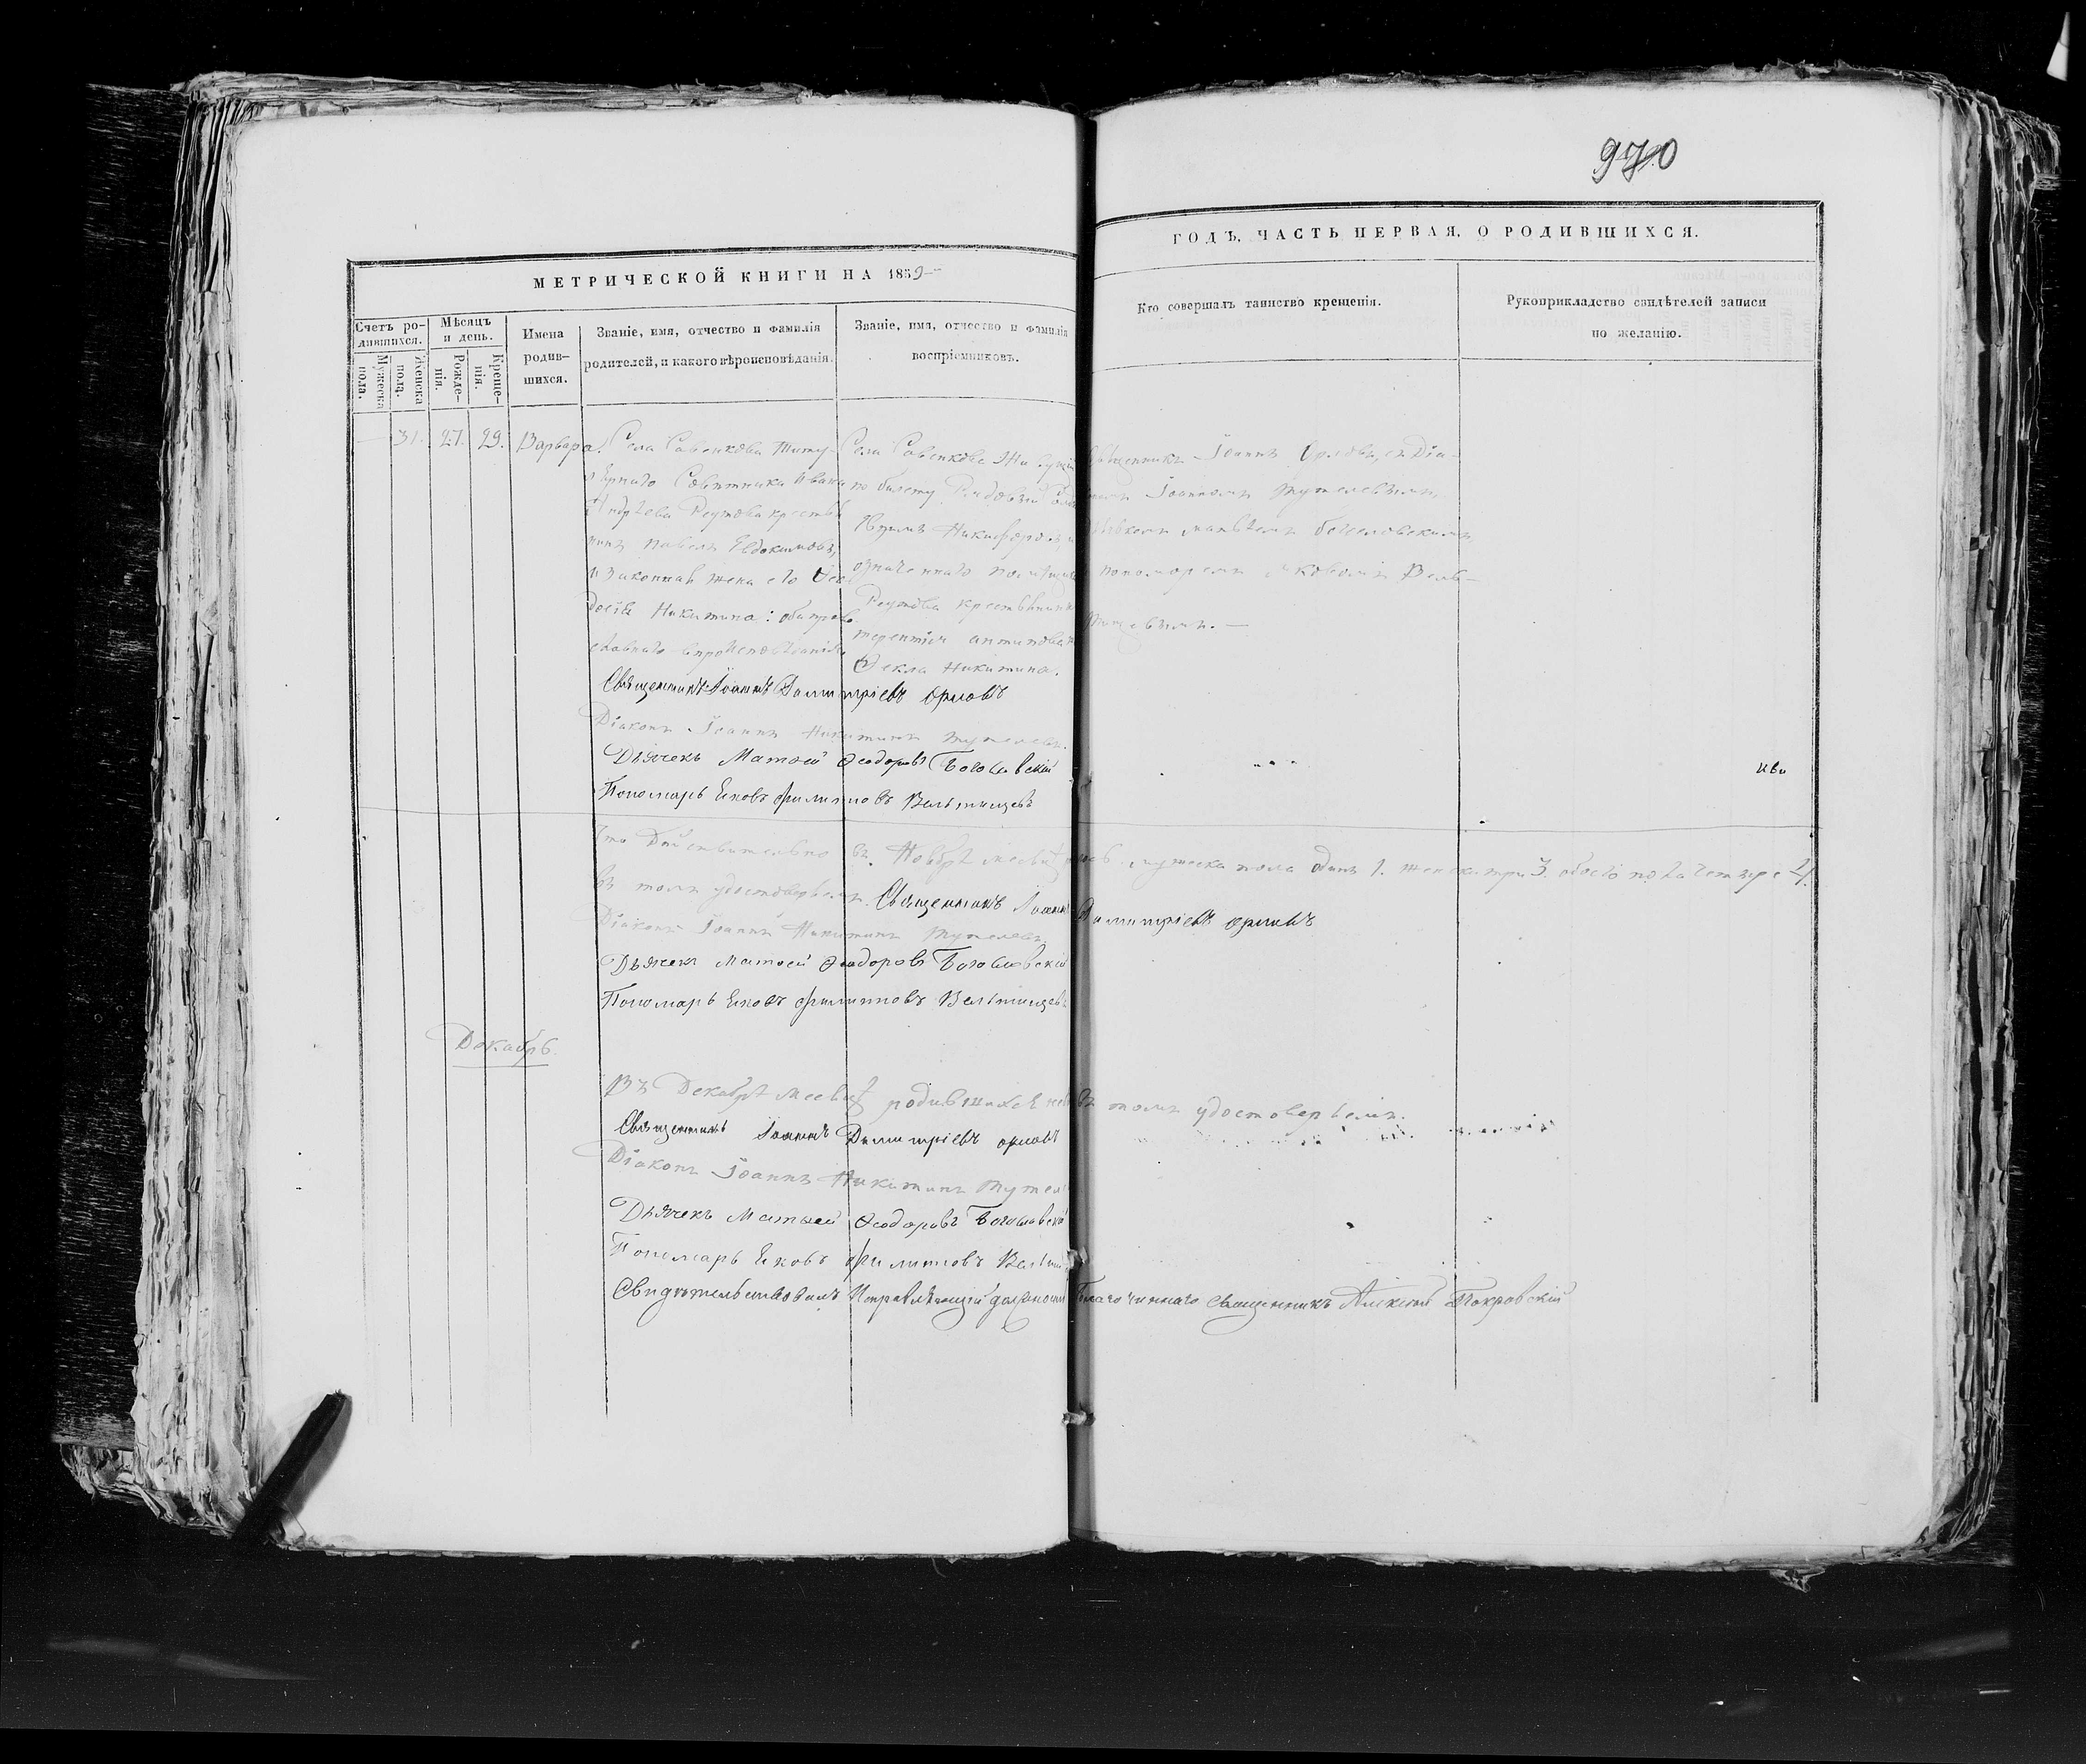 970
МЕТРИЧЕСКОЙ КНИГИ НА 1859
ГОДЪ, ЧАСТЬ ПЕРВАЯ, О РОДИВШИХСЯ.
Счетъ ро-
дившихся.
Мужеска
пола.
Женска
пола.
Мѣсяцъ
и день.
Рожде-
нія.
Креще-
нія.
Имена
родив-
шихся.
Званіе, имя, отчество и фамилія
родителей, и какого вѣроисповѣданія.
Званіе, имя, отчество и фамилія
воспріемниковъ.
Кто совершалъ таинство крещенія.
Рукоприкладство свидѣтелей записи
по желанію.
31. 27. 29. Варвара.
Села Савенкова Титу-
лярнаго Совѣтника Ивана
Андрѣева Реутова крестья
нинъ Павелъ Евдокимовъ,
и законная жена его Ѳео
досія Никитина: оба право
славнаго вѣроисповѣданія
Села Савенкова Живущій
по билету Рядовой
Никифоровъ, и
означеннаго помѣщика
Реутова крестьянина
терентія антипова
Ѳекла Никитина.
Священникъ Іоаннъ Орловъ, съ Діа-
Іоанномъ Тутелевымъ,
Дьячкомъ матвѣемъ богословскимъ,
пономоремъ яковомъ Вель-
тищевымъ. —
Священникъ Іоаннъ Димитріевъ орловъ
Діаконъ Іоаннъ Никитинъ Тутелевъ.
Дьячекъ Матѳей Ѳеодоровъ Богословскій
Пономарь Яковъ филиповъ Вельтищевъ
Что Дѣйствительно въ Ноябрѣ месяцѣ мужеска пола одинъ 1. женска три 3. обоего пола четыре 4.
въ томъ удостоверяемъ. Священникъ Іоаннъ Димитріевъ орловъ
Діаконъ Іоаннъ Никитинъ Тутелевъ.
Дьячекъ Матѳей Ѳеодоровъ Богословскій
Пономарь Яковъ филиповъ Вельтищевъ
Декабрь.
Въ Декабрѣ месяцѣ родившихся не въ томъ удостоверяемъ.
Священникъ Іоаннъ Димитріевъ орловъ
Діаконъ Іоаннъ Никитинъ Тутел
Дьячекъ Матѳей Ѳеодоровъ Богословскій
Пономарь Яковъ филиповъ Вельти
Свидѣтельствовалъ Исправляющій должность Благочиннаго Священникъ Алексій Покровскій